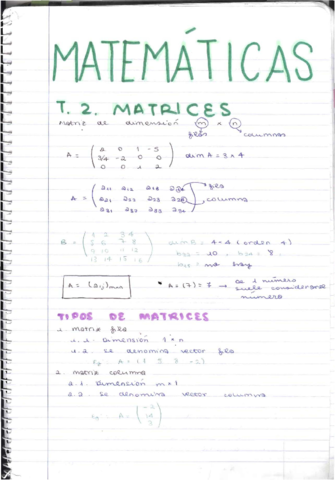 MATEMÁTICAS
T. 2. MATRICES
Matriz de dimensión m x n
filas columnas
A = ( 2 0 1 -5
3/4 -2 0 0
0 0 1 2 ) dim A = 3 x 4
A = ( a11 a12 a13 a14
a21 a22 a23 a24
a31 a32 a33 a34 ) fila
columna
B = ( 1 2 3 4
5 6 7 8
dim B = 4 x 4 (orden 4)
= 10 = 8
no hay
A = (aij)mxn
A = (7) = 7 → número
suele considerarse
número
TIPOS DE MATRICES
1. matriz fila
1.1. Dimensión 1 x n
1.2. Se denomina vector fila
2. matriz columna
2.1. Dimensión m x 1
2.2. Se denomina vector columna